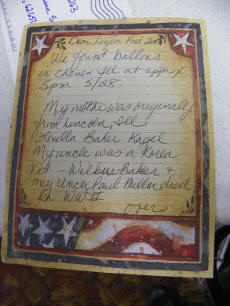 Dear Legion Post 263
We found ballons
in Chenoa Ill at approx
5pm 5/28.
My mother was originally
from Lincoln, Ill
Louella Baker Kagel
My uncle was a Korea
Vet - Wilbur Baker &
my uncle Paul Miller died
in WW II
over